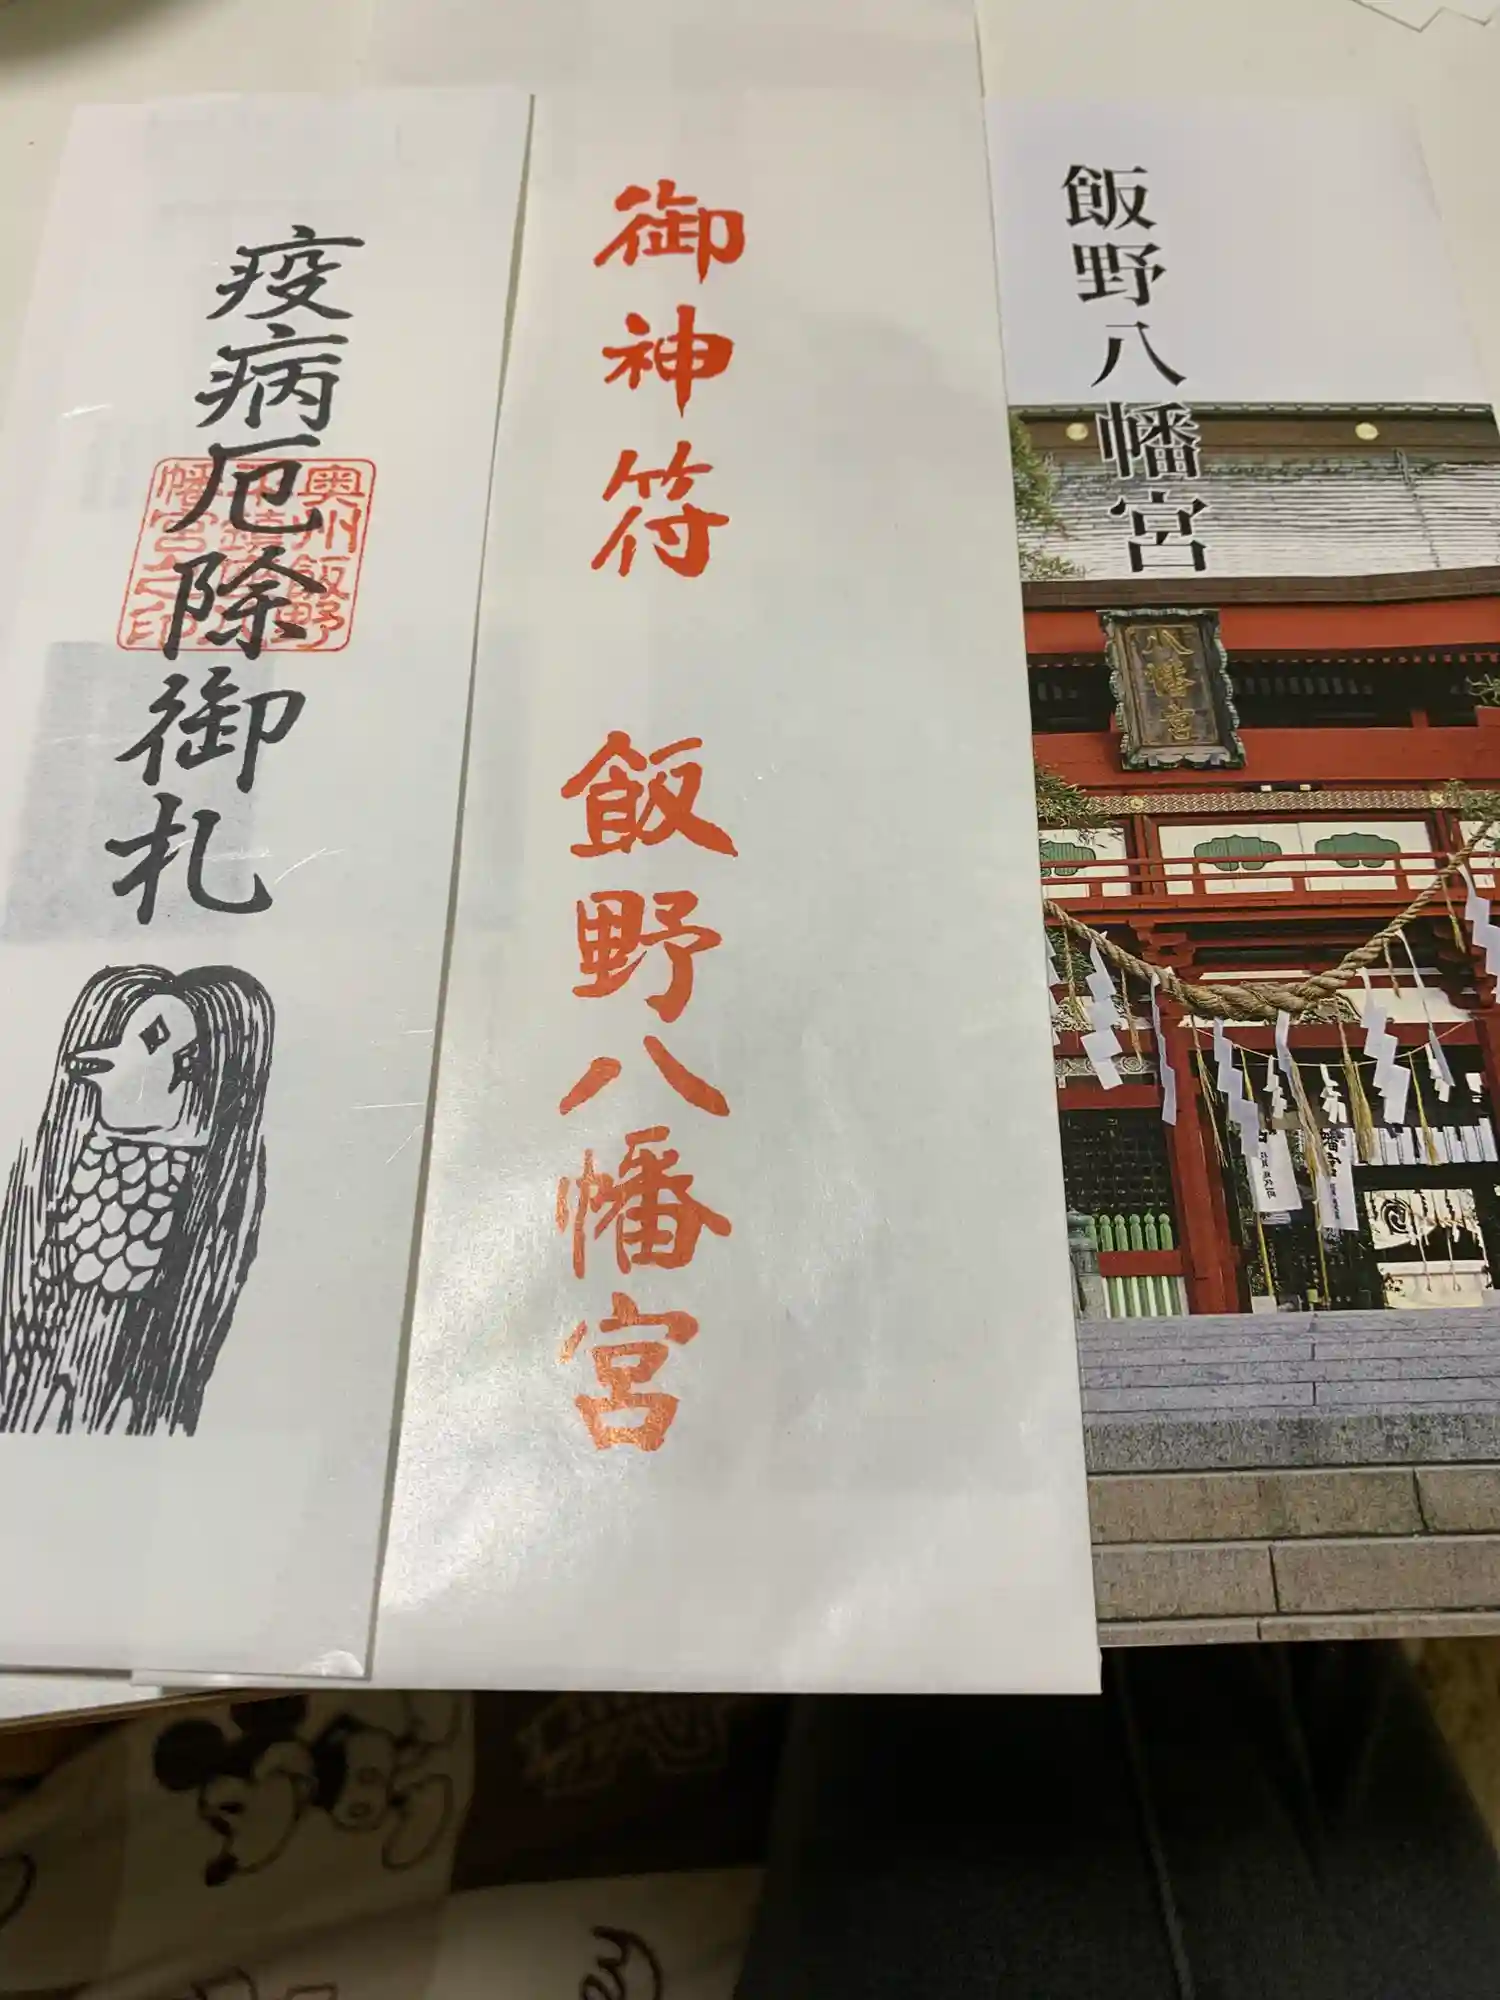 飯野八幡宮
八幡宮
御神符 飯野八幡宮
疫病厄除御札
奥州飯野
幡宮之印